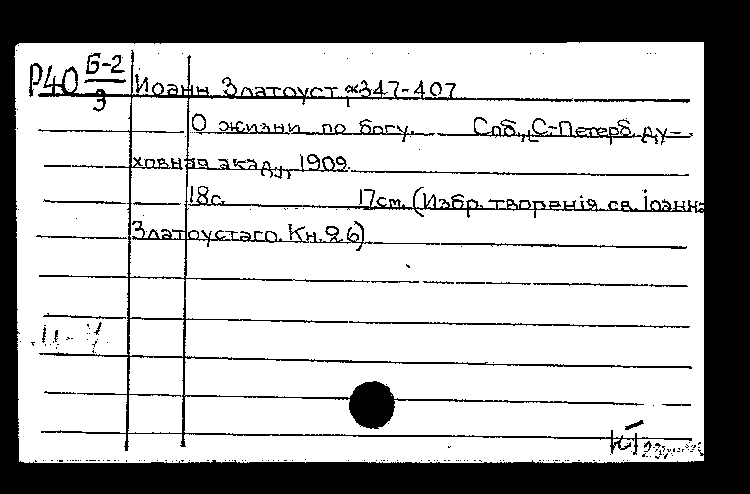 Р40 Б-2/3 Иоанн Златоуст *347-407
О жизни по богу. Спб., С-Петерб. ду-
ховная акад., 1909.
18с. 17см. (Избр. творенія св. Іоанна
Златоустаго. Кн. 26)